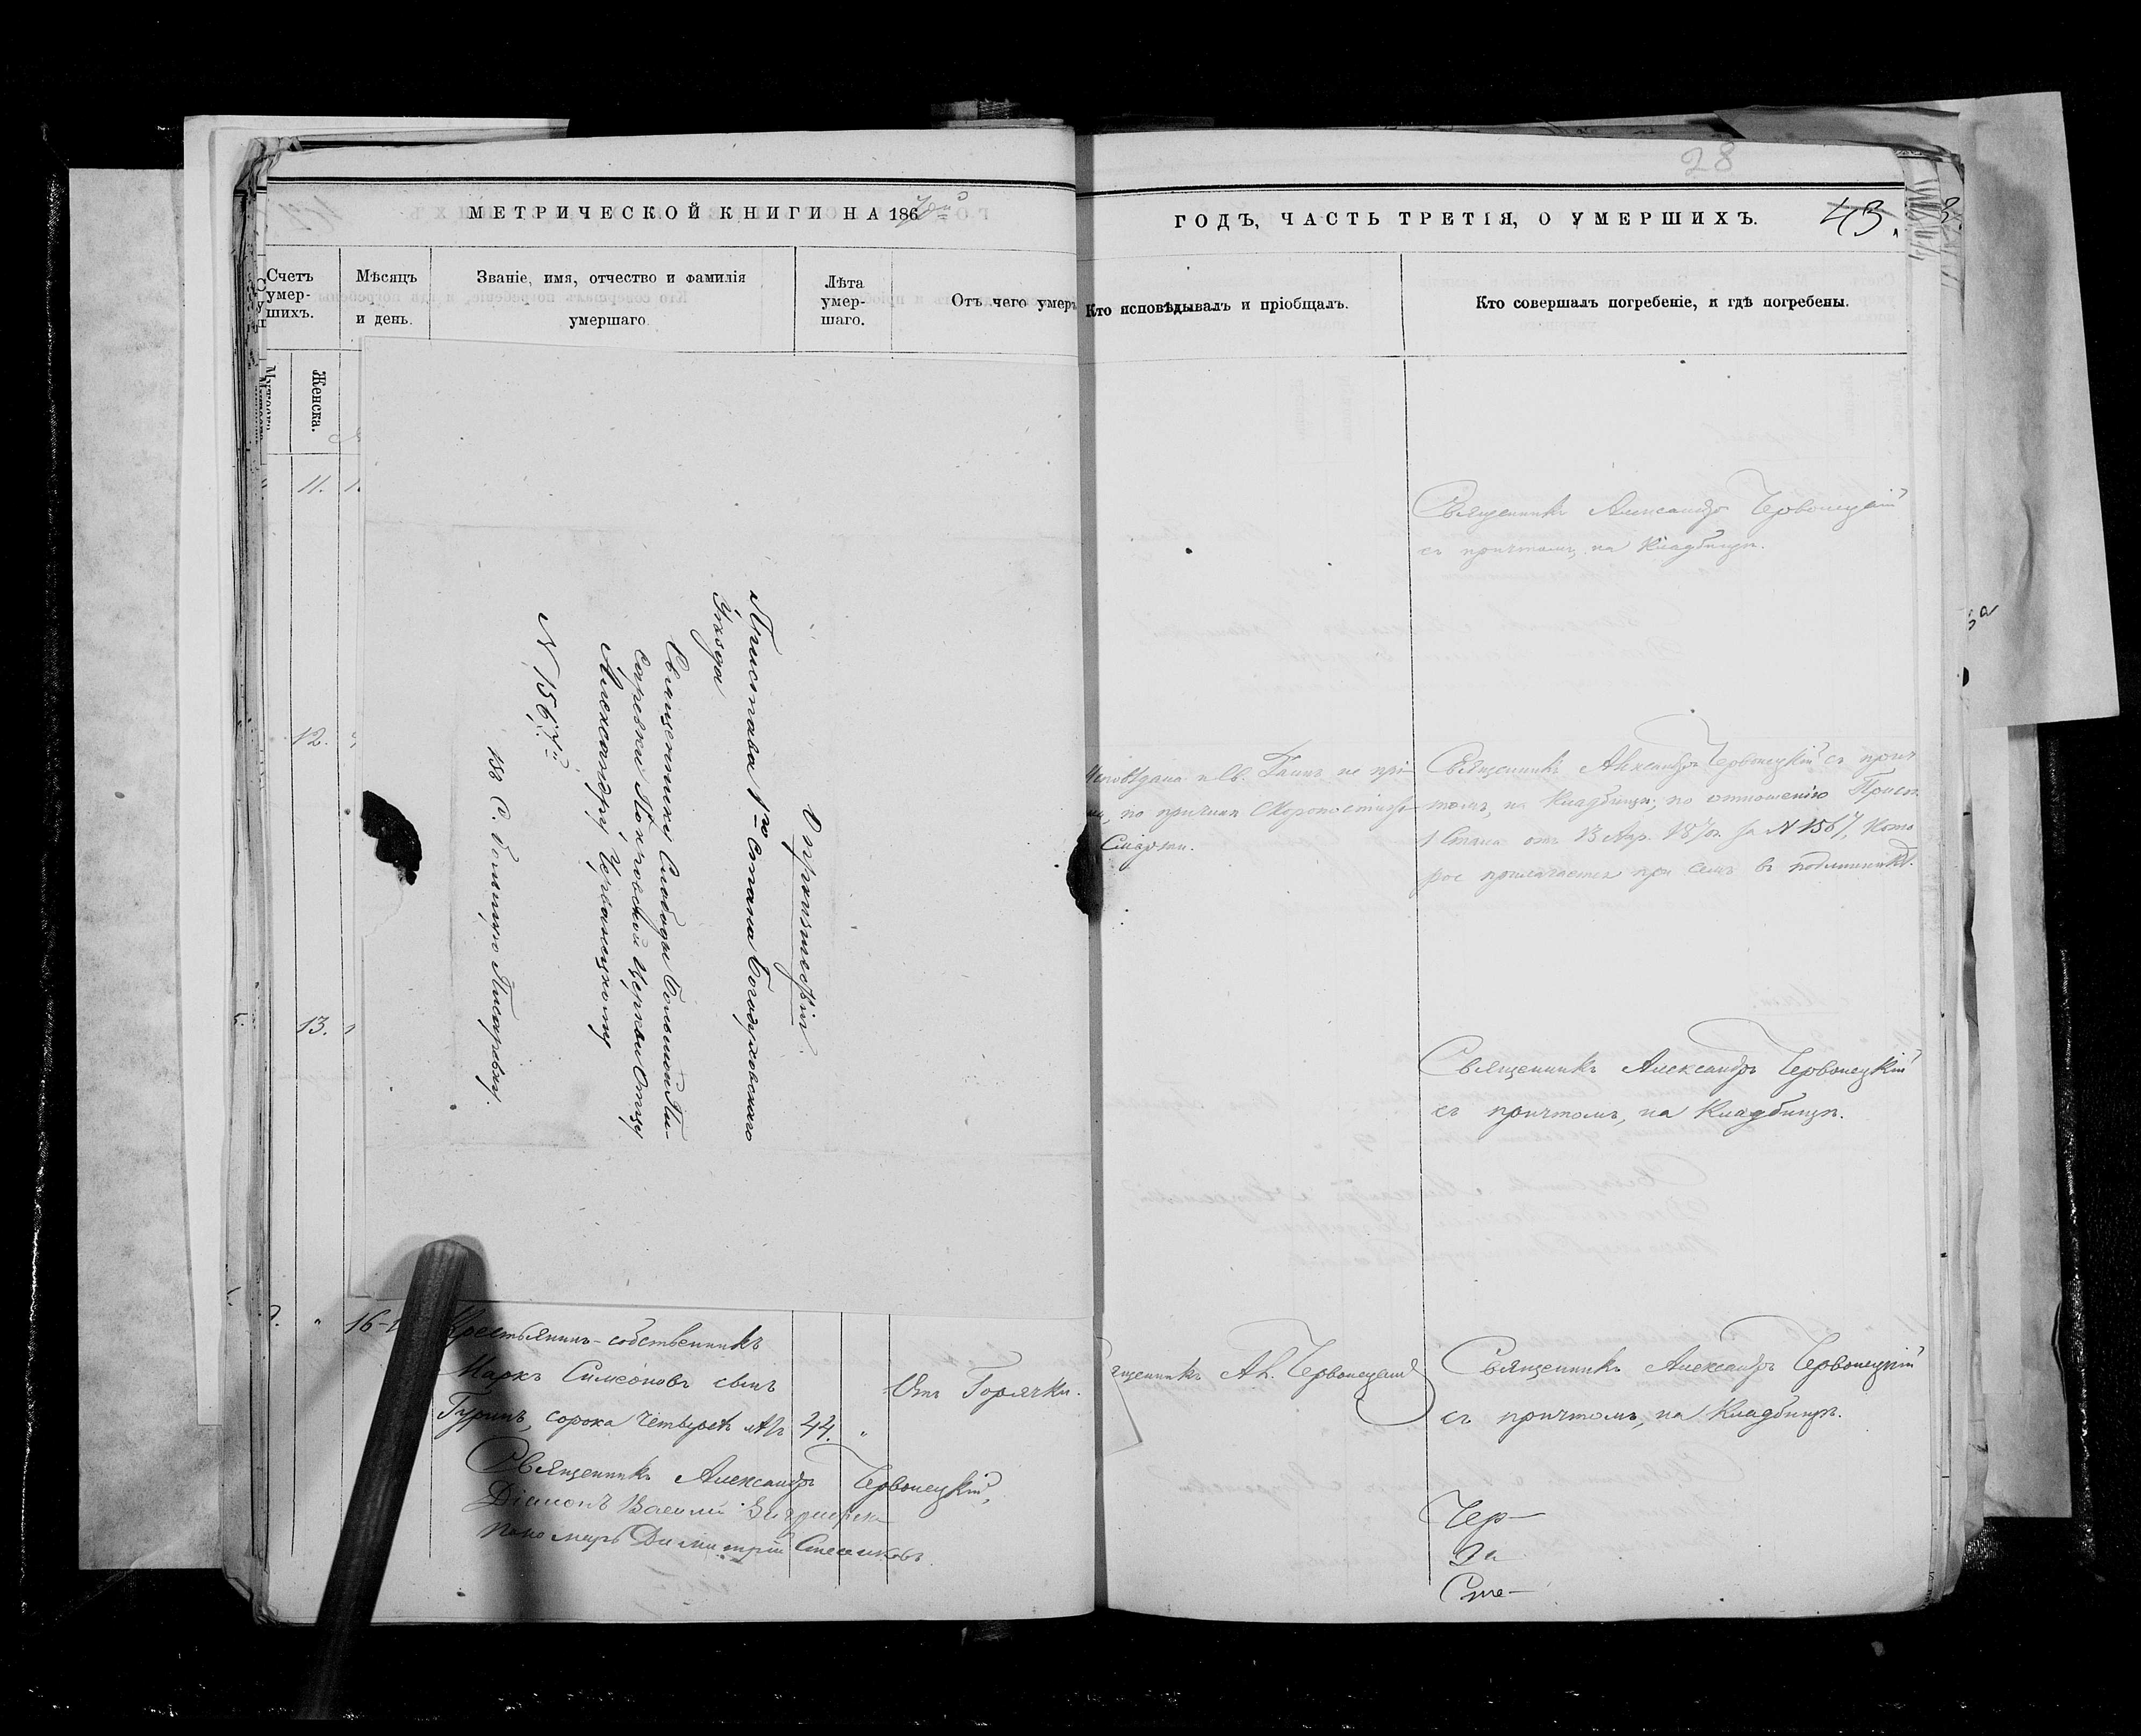 28
МЕТРИЧЕСКОЙ КНИГИ НА 1870й
ГОДЪ, ЧАСТЬ ТРЕТІЯ, О УМЕРШИХЪ.
43.
Счетъ умер-шихъ.
Мѣсяцъ и день.
Званіе, имя, отчество и фамилія умершаго.
Лѣта умер-шаго.
Отъ чего умеръ
Кто исповѣдывалъ и пріобщалъ.
Кто совершалъ погребеніе, и гдѣ погребены.
Мужеска.
Женска.
11.
Священникъ Александръ Червонецкій
съ причтомъ, на Кладбищѣ.
О происшествіи
Пристава 1го стана Богодуховскаго
Уѣзда
Священнику Слободы Большой Пи-
саревки Покровской Церкви Отцу
Александру Червонецкому
N 1567й
Въ С. Большую Писаревку.
12.
Исповѣдана и Св. Таинъ не прі-
по причинѣ Скоропостижной
Смерти.
Священникъ Александръ Червонецкій съ прич
томъ, на Кладбищѣ, по отношенію Прист.
1 Стана отъ 13 Апр. 1870 за N 1567, Кото
рое прилагается при семъ въ подлинникѣ.
13.
Священникъ Александръ Червонецкій
съ причтомъ, на Кладбищѣ.
16
Крестьянинъ-собственникъ
Маркъ Симеоновъ сынъ
Гуринъ, сорока четырехъ лѣтъ
44.
Отъ Горячки.
Священникъ Ал. Червонецкій
Священникъ Александръ Червонецкій
съ причтомъ, на Кладбищѣ.
Священникъ Александръ Червонецкій,
Діаконъ Василій
Пономарь Димитрій
Чер-
За
Сте-